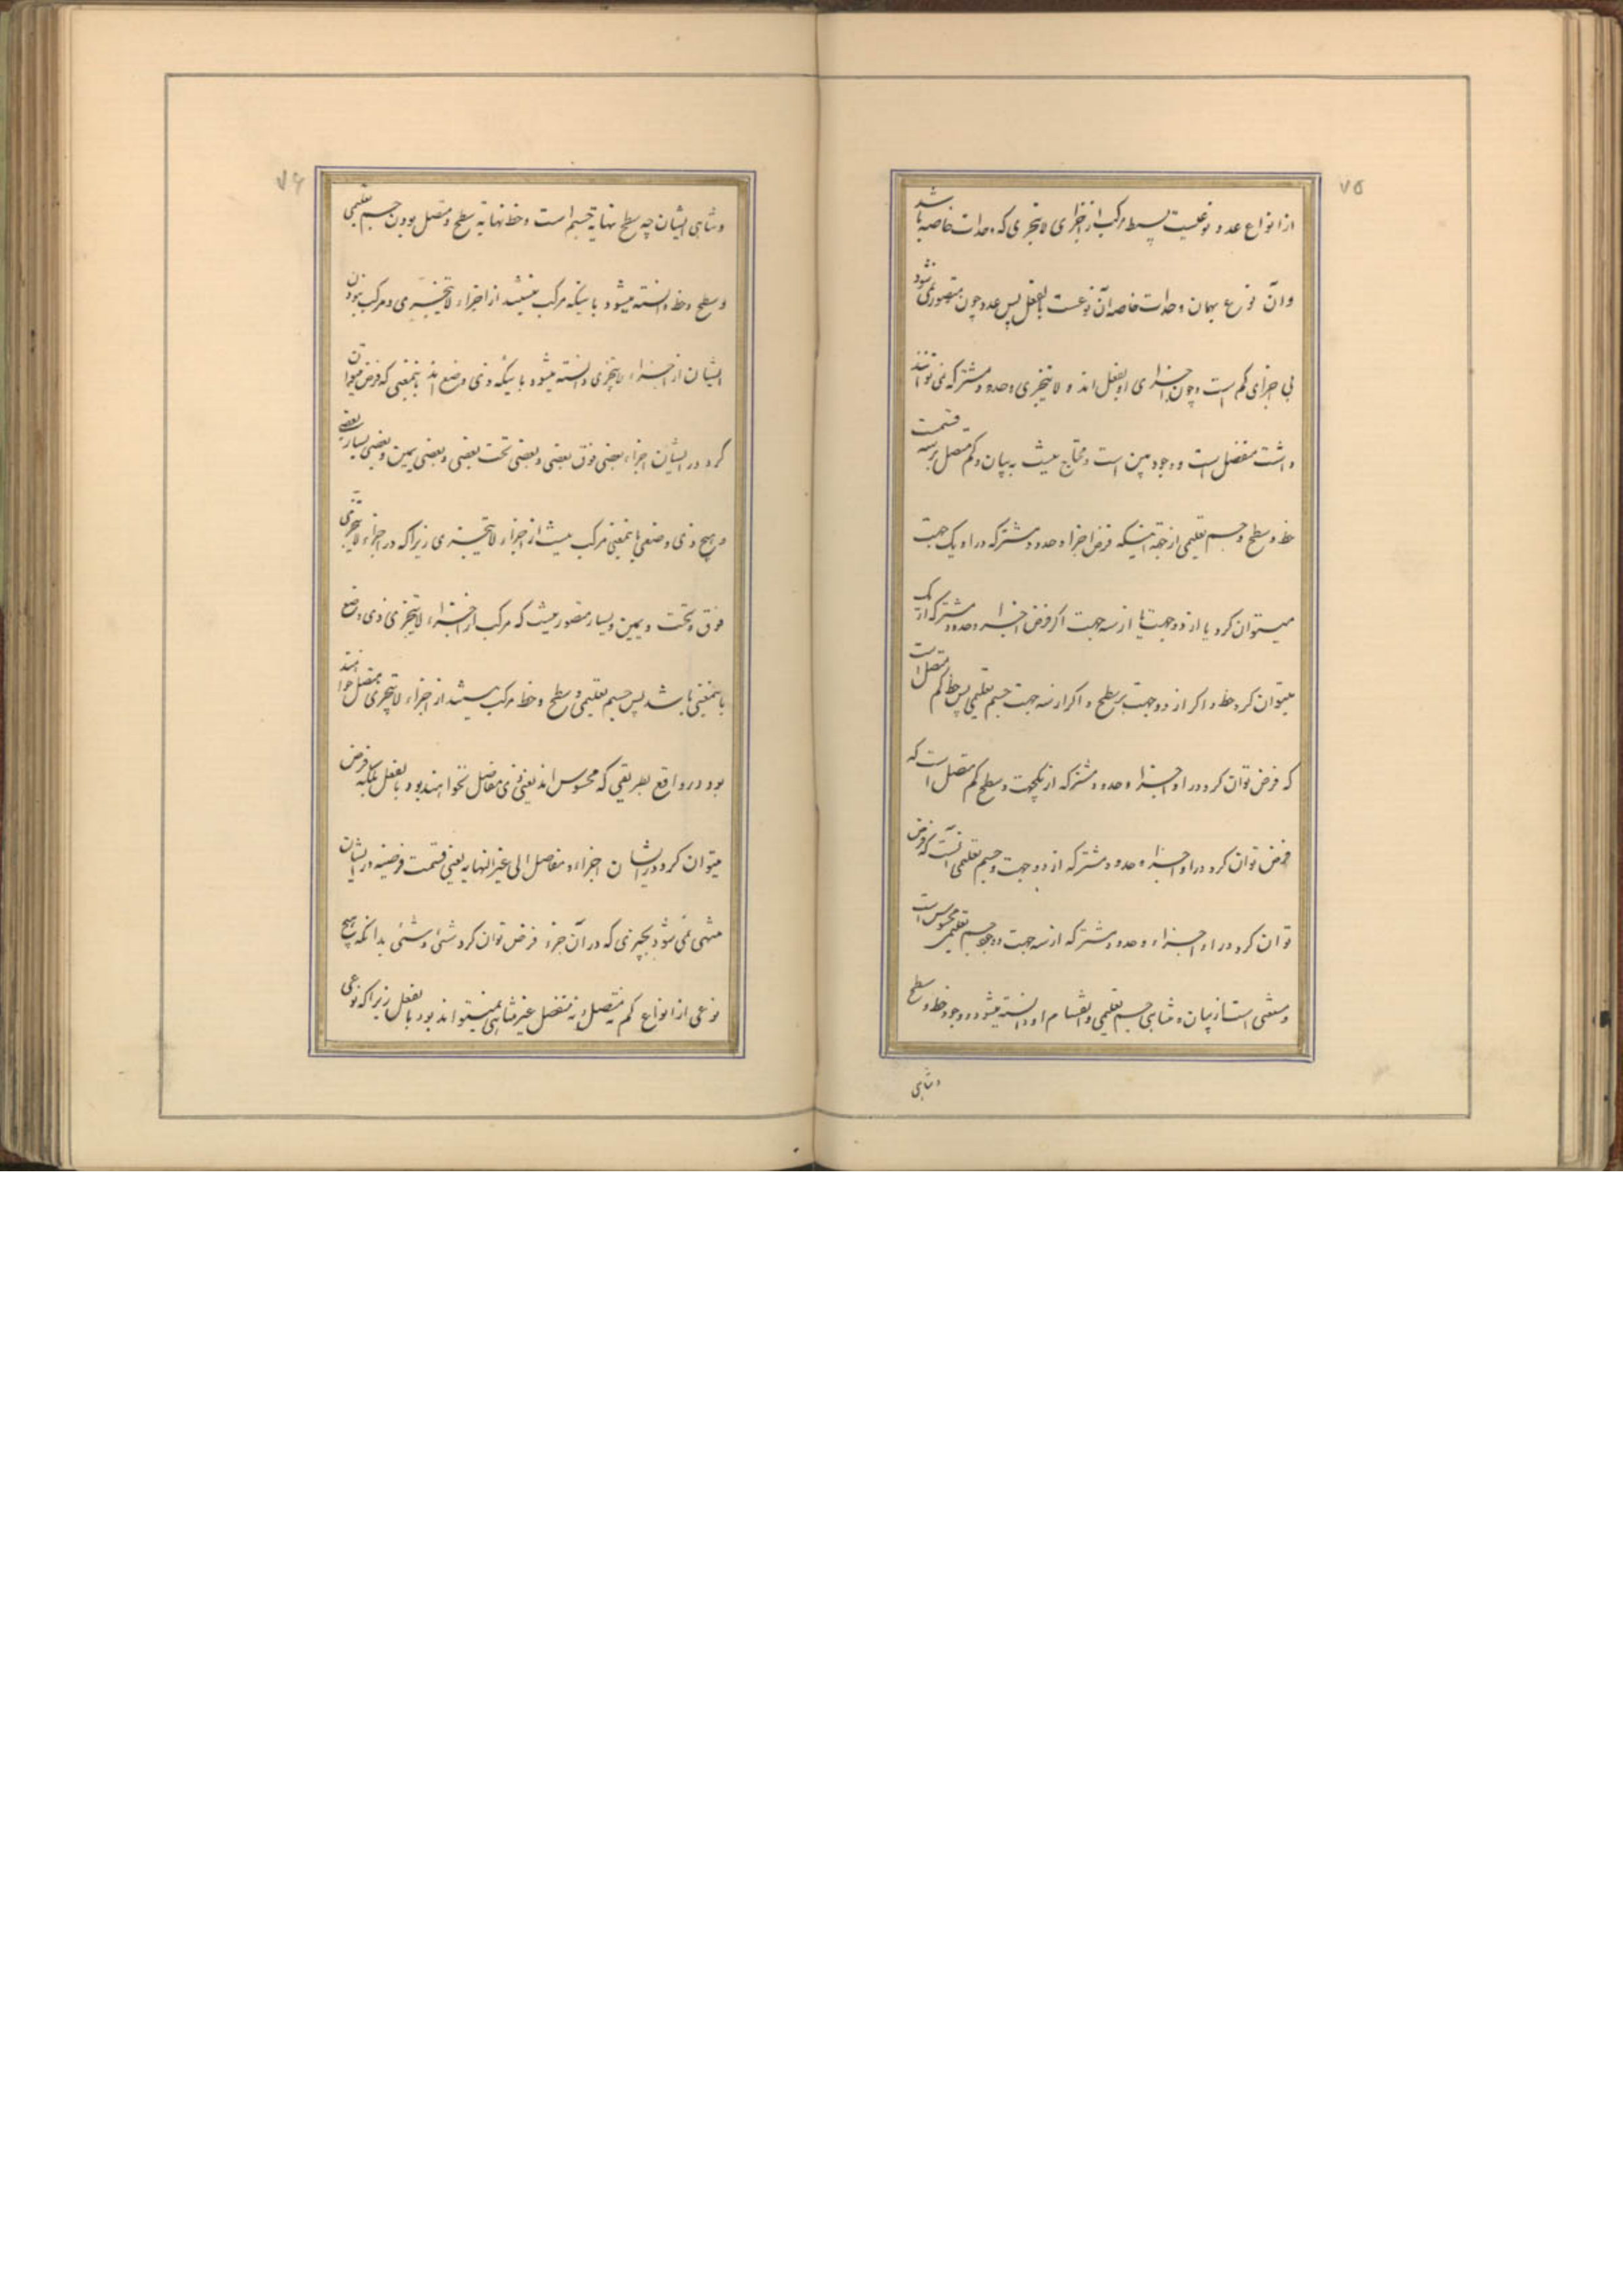 ۷۵
از انواع عدد نوعیست بسیط مرکب از اجزای لایتجزی که وحدات خاصه باشد
وآن نوع بهمان وحدات خاصه آن نوعست بالفعل پس عدد چون متصور نمی‌شود
بی اجزای کم است و چون اجزای او بفعل اند و لایتجزی وحدود مشترکه نمی‌توانند
داشت منفصل است و وجودش مبین است و محتاج نیست به بیان و کم متصل بر سه قسمت
خط و سطح و جسم تعلیمی از جهة اینکه فرض اجزا و حدود مشترکه در او یک جهت
میتوان کرد یا از دو جهت یا از سه جهت اگر فرض اجزا و حدود مشترکه از یک
میتوان کرد خط و اگر از دو جهت سطح و اگر از سه جهت جسم تعلیمی پس خط کم متصل است
که فرض توان کرد در او اجزا و حدود مشترکه از یکجهت و سطح کم متصل است که
فرض توان کرد در او اجزا و حدود مشترکه از دو جهت و جسم تعلیمی آنست که فرض
توان کرد در او اجزاء و حدود مشترکه از سه جهت و وجود جسم تعلیمی محسوس است
ومستغنی است از بیان و تناهی جسم تعلیمی و انقسام او دانسته میشود وجود خط و سطح
وتناهی
۷۶
وتناهی ایشان چه سطح نهایة جسم است و خط نهایة سطح و متصل بودن جسم تعلیمی
و سطح و خط دانسته میشود باینکه مرکب نیستند از اجزاء لایتجزی و مرکب نبودن
ایشان از اجزاء لایتجزی دانسته میشود باینکه ذی وضع اند بمعنی که فرض میتوان
کرد در ایشان اجزاء بعضی فوق بعضی و بعضی تحت بعضی و بعضی یمین و بعضی یسار بعضی
و هیچ ذی وضعی باینمعنی مرکب نیست از اجزاء لایتجزی زیرا که در اجزاء لایتجزی
فوق و تحت و یمین و یسار متصور نیست که مرکب از اجزاء لایتجزی ذی وضع
باینمعنی باشد پس جسم تعلیمی و سطح و خط مرکب نیستند از اجزاء لایتجزی متصل خواهند
بود در واقع بطریقی که محسوس اند یعنی ذی مفاصل نخواهند بود بالفعل بلکه فرض
میتوان کرد در ایشان اجزاء و مفاصل الی غیر النهایه یعنی قسمت فرضیه در ایشان
منتهی نمی‌شود بچیزی که در آن جزء فرض توان کرد شئ و شئی بدانکه هیچ
نوعی از انواع کم نه متصل و نه منفصل غیر متناهی نمیتواند بود بالفعل زیرا که نوعی